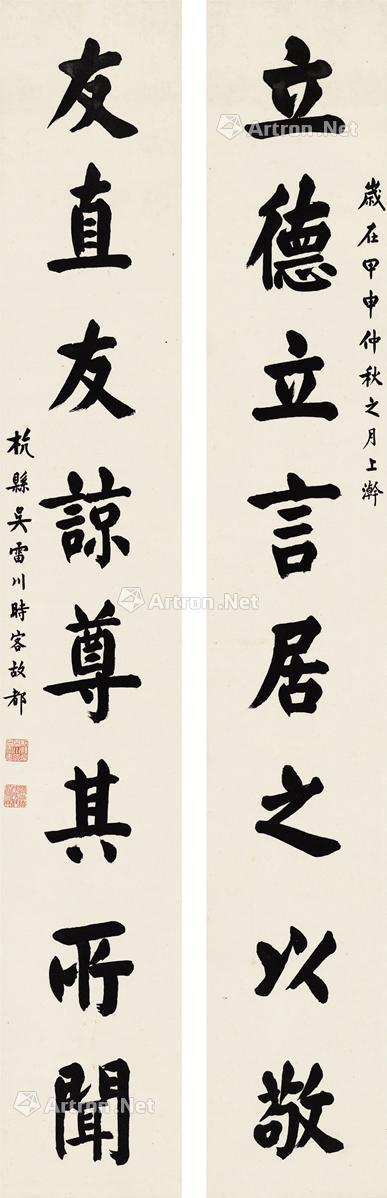 歲在甲申仲秋之月上澣
立德立言居之以敬
友直友諒尊其所聞
杭縣吳雷川時客故都
Artron.Net
Artron.Net
Artron.Net
Artron.Net